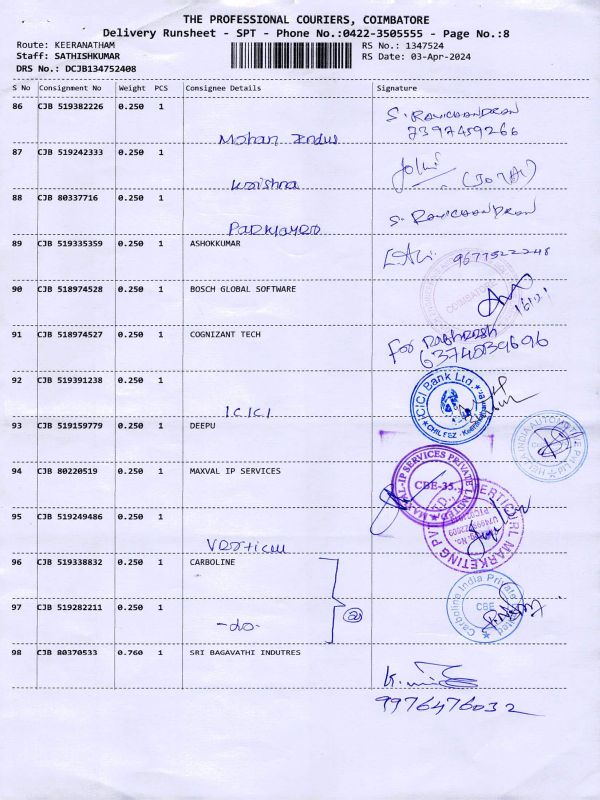 THE PROFESSIONAL COURIERS, COIMBATORE
Delivery Runsheet - SPT - Phone No.:0422-3505555 - Page No.:8
Route: KEERANATHAM RS No.: 1347524
Staff: SATHISHKUMAR RS Date: 03-Apr-2024
DRS No.: DCJB134752408
S No Consignment No Weight PCS Consignee Details Signature
86 CJB 519382226 0.250 1 S. RAVICHANDRAN
7397459266
Mohan Indus
87 CJB 519242333 0.250 1
Krishna
88 CJB 80337716 0.250 1 S. RAVICHANDRAN
89 CJB 519335359 0.250 1 ASHOKKUMAR 9677522248
90 CJB 518974528 0.250 1 BOSCH GLOBAL SOFTWARE
COIMBATORE
91 CJB 518974527 0.250 1 COGNIZANT TECH
For
92 CJB 519391238 0.250 1
ICICI Bank Ltd.
CHIL FEZ - Keeranatham Br.
ICICI
93 CJB 519159779 0.250 1 DEEPU
94 CJB 80220519 0.250 1 MAXVAL IP SERVICES
MAXVAL-IP SERVICES PRIVATE LIMITED
CBE-35.
95 CJB 519249486 0.250 1
MARKETING
96 CJB 519338832 0.250 1 CARBOLINE
Carboline India Private Limited
CBE
97 CJB 519282211 0.250 1
-do-
98 CJB 80370533 0.760 1 SRI BAGAVATHI INDUTRES
9976476032